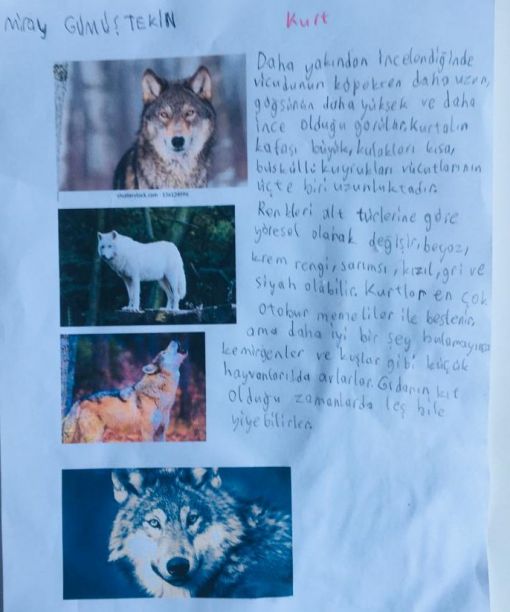 Miray GÜMÜŞTEKİN
Kurt
Daha yakından incelendiğinde
vücudunun köpekten daha uzun,
göğsünün daha yüksek ve daha
ince olduğu görülür. Kurtların
kafası büyük, kulakları kısa,
büsküllü kuyrukları vücutlarının
üçte biri uzunluktadır.
Renkleri alt türlerine göre
yöresel olarak değişir, beyaz,
krem rengi, sarımsı, kızıl, gri ve
siyah olabilir. Kurtlar en çok
otobur memeliler ile beslenir,
ama daha iyi bir şey bulamayınca
kemirgenler ve kuşlar gibi küçük
hayvanlarıda avlarlar. Gıdanın kıt
olduğu zamanlarda leş bile
yiyebilirler.
shutterstock.com